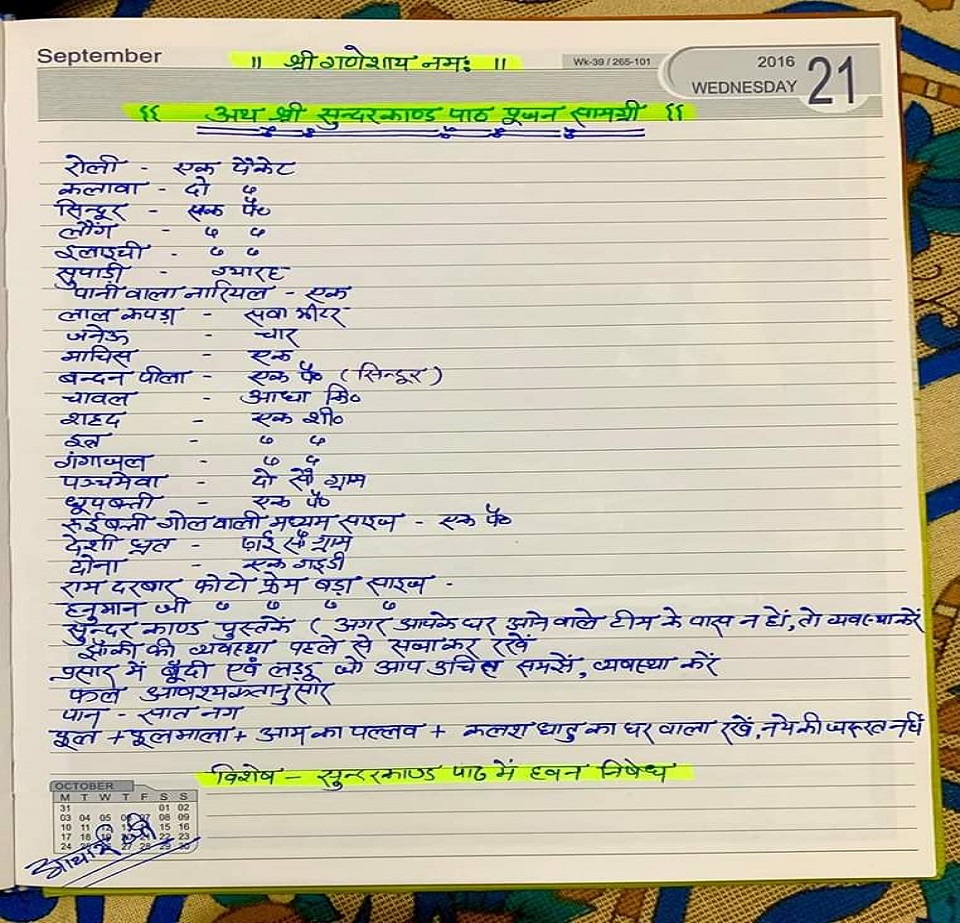 September
॥ श्री गणेशाय नमः ॥
Wk-39 / 265-101
2016
WEDNESDAY 21
{{ अथ श्री सुन्दरकाण्ड पाठ पूजन सामग्री {{
रोली - एक पैकेट
कलावा - दो "
सिन्दूर - एक पै०
लौंग - " "
इलाइची - " "
सुपाड़ी - ग्यारह
पानी वाला नारियल - एक
लाल कपड़ा - सवा मीटर
जनेऊ - चार
माचिस - एक
बन्दन पीला - एक पै० (सिन्दूर)
चावल - आधा कि०
शहद - एक शी०
इत्र - " "
गंगाजल - " "
पञ्चमेवा - दो सौ ग्राम
धूपबत्ती - एक पै०
रुईबत्ती गोलवाली मध्यम साइज - एक पै०
देशी घृत - ढाई सौ ग्राम
दोना - एक गड्डी
राम दरबार फोटो फ्रेम बड़ा साइज -
हनुमान जी " " " "
सुन्दर काण्ड पुस्तकें ( अगर आपके घर आने वाले टीम के पास न हों, तो व्यवस्था करें
झाँकी की व्यवस्था पहले से सजाकर रखें
प्रसाद में बूँदी एवं लड्डू जो आप उचित समझें, व्यवस्था करें
फल आवश्यकतानुसार
पान - सात नग
फूल + फूलमाला + आम का पल्लव + कलश धातु का घर वाला रखें, नये की जरूरत नहीं
विशेष - सुन्दरकाण्ड पाठ में हवन निषेध
OCTOBER
M T W T F S S
31 01 02
03 04 05 06 07 08 09
10 11 12 15 16
17 18 19 21 22 23
24 27 28 29 30
आचार्य